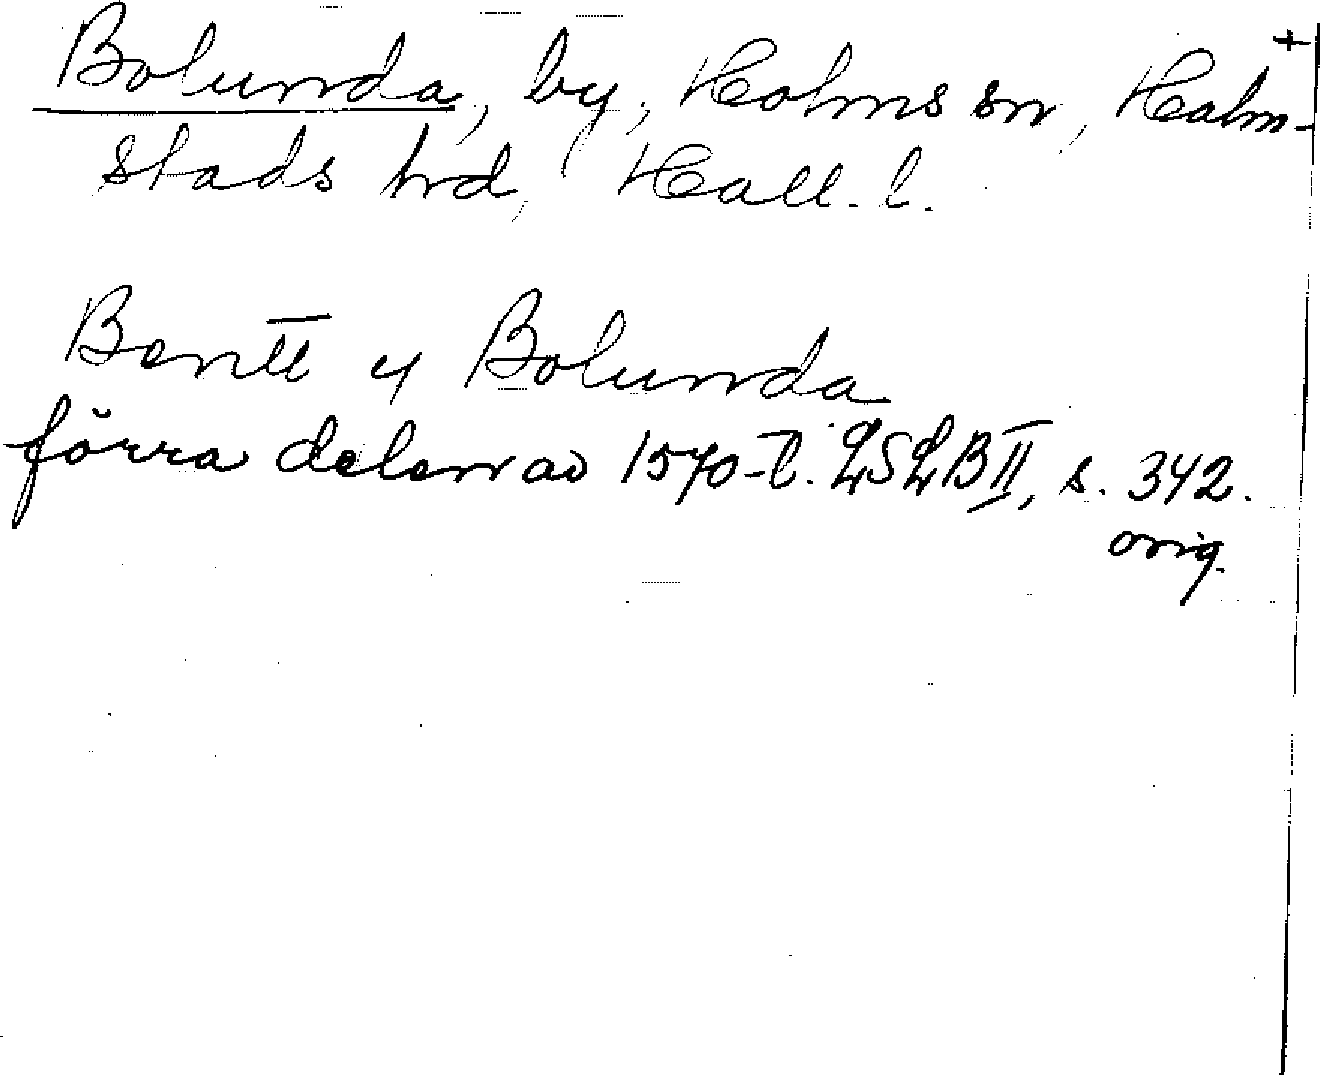 +
Bolunda, by, Holms sn, Halm-
stads hrd, Hall. l.
Bentt y Bolunda
förra delen av 1570-t. LSLB II, s. 342.
orig.